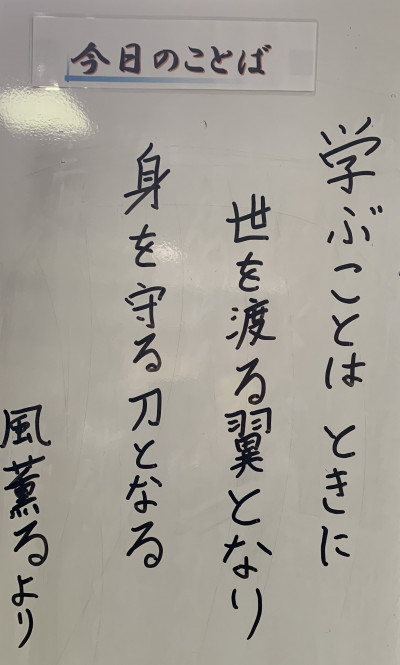 今日のことば
学ぶことは ときに
世を渡る翼となり
身を守る刀となる
風薫るより